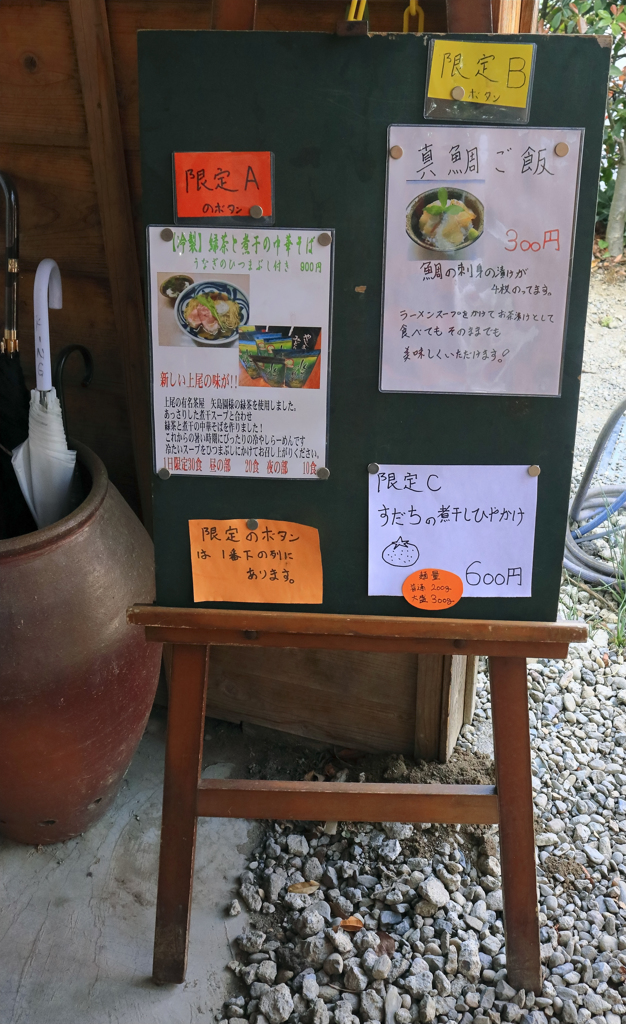 限定A
のボタン
【冷製】緑茶と煮干の中華そば
うなぎのひつまぶし付き 900円
新しい上尾の味が!!
上尾の有名茶屋 矢島園様の緑茶を使用しました。
あっさりした煮干スープと合わせ
緑茶と煮干の中華そばを作りました!
これからの暑い時期にぴったりの冷やしらーめんです
冷たいスープをひつまぶしにかけてお召し上がりください。
1日限定30食 昼の部 20食 夜の部 10食
限定のボタン
は 1番下の列に
あります。
限定B
ボタン
真鯛ご飯
300円
鯛の刺身の漬けが
4枚のってます。
ラーメンスープをかけてお茶漬けとして
食べても そのままでも
美味しくいただけます!
限定C
すだちの煮干しひやかけ
600円
麺量
普通 200g
大盛 300g
KING